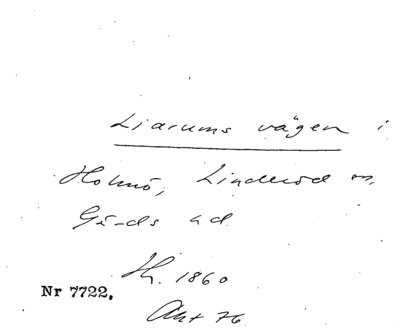 Liarums vägen i
Holmö, Linderöd sn,
Gärds hd
H. 1860
Nr 7722.
Akt 76